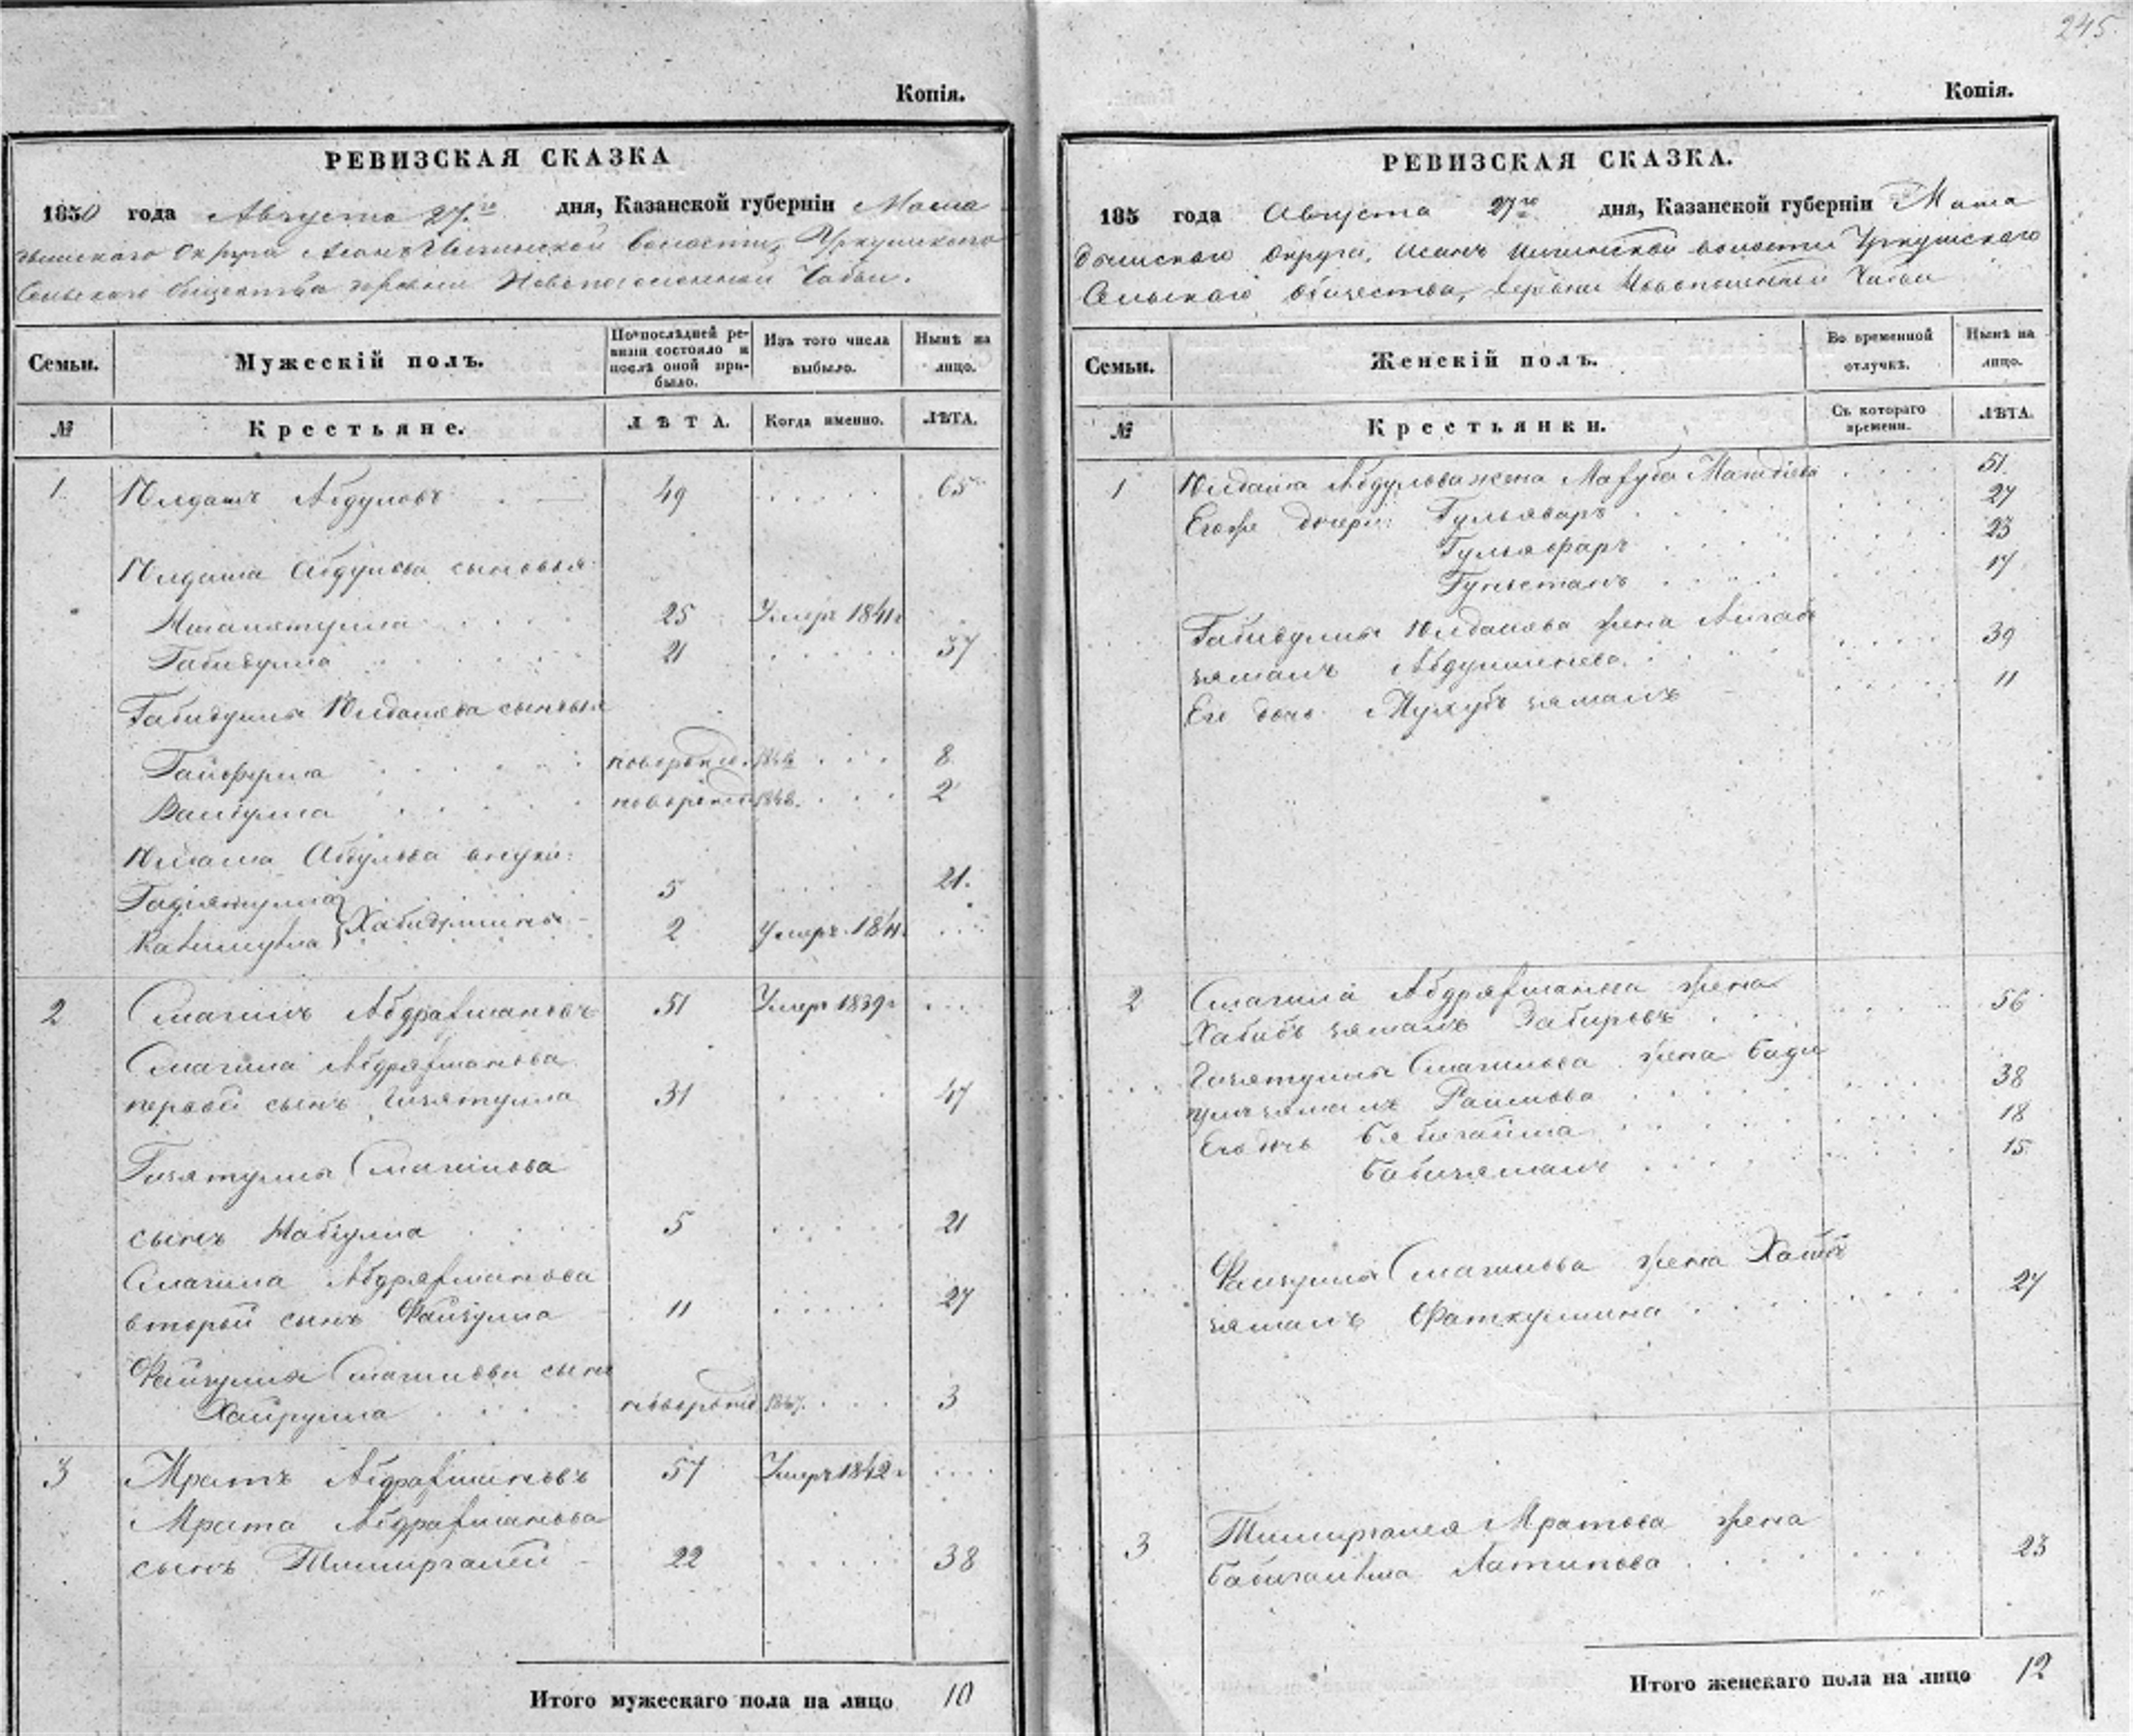 245.
Копія.
РЕВИЗСКАЯ СКАЗКА
1850 года Августа 27.го дня, Казанской губерніи Мама
дышскаго Округа Исанъ волости, Уркушскаго
Сельскаго Общества деревни Новопоселенной Чабьи.
Семьи.
Мужескій полъ.
По послѣдней ре-
визіи состояло и
послѣ оной при-
было.
Изъ того числа
выбыло.
Нынѣ на
лицо.
№
Крестьяне.
ЛѢТА.
Когда именно.
ЛѢТА.
1 Юлдашъ Абдуловъ 49 65
Юлдаша Абдулова сыновья
25 Умеръ 1841г
Габидулла 21 37
Габидуллы Юлдашева сыновья
Гайфулла новорожд. 8
Валіулла новорожд 1848. 2
Юлдаша Абдулова внуки:
Гадіятулла 5 21.
2 Умеръ 1841.
2 Смагилъ Абдрахмановъ 51 Умеръ 1839г
Смагила Абдряхманова
первой сынъ Гизятулла 31 47
Гизятуллы Смагилова
сынъ Набіулла 5 21
Смагила Абдряхманова
второй сынъ Файзулла 11 27
Файзуллы Смагилова сынъ
Хайрулла новорожд 1847. 3
3 Мратъ Абдрахмановъ 57 Умеръ 1842г
Мрата Абдрахманова
сынъ Тимиргалей 22 38
Итого мужескаго пола на лицо 10
Копія.
РЕВИЗСКАЯ СКАЗКА.
185 года Августа 27го дня, Казанской губерніи Мама
дышскаго Округа, Исанъ волости Уркушскаго
Сельскаго Общества, деревни Новопоселенной Чабьи
Семьи.
Женскій полъ.
Во временной
отлучкѣ.
Нынѣ на
лицо.
№
Крестьянки.
Съ котораго
времени.
ЛѢТА.
1 Юлдаша Абдулова жена Махуба 51.
Егоже дочери: Гульяваръ 27
Гульяфаръ 23
Гульстанъ 17
Габидуллы Юлдашева жена
зямалъ Абдуллина 39
Его дочь зямалъ 11
2 Смагила Абдряхманова жена
Хабибъ зямалъ Забирова 56
Гизятуллы Смагилова жена Бади
38
Его дочь Бибигайша 18
Бибизямалъ 15
Файзуллы Смагилова жена
зямалъ Фаткуллина 27
3 Тимиргалея Мратова жена
Латыпова 23
Итого женскаго пола на лицо 12